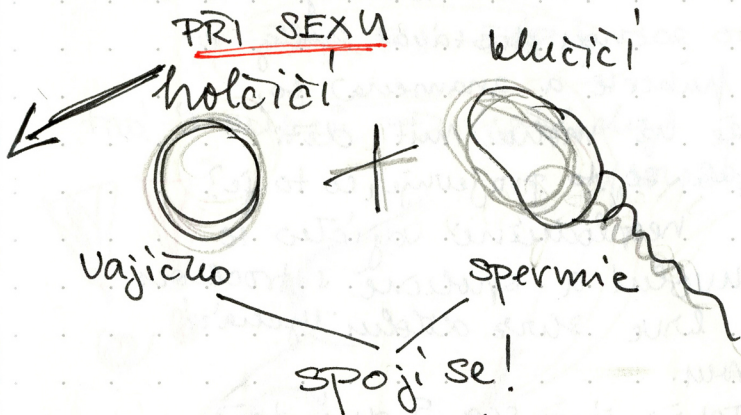 PŘI SEXU
holčičí
klučičí
+
vajíčko
spermie
spojí se!